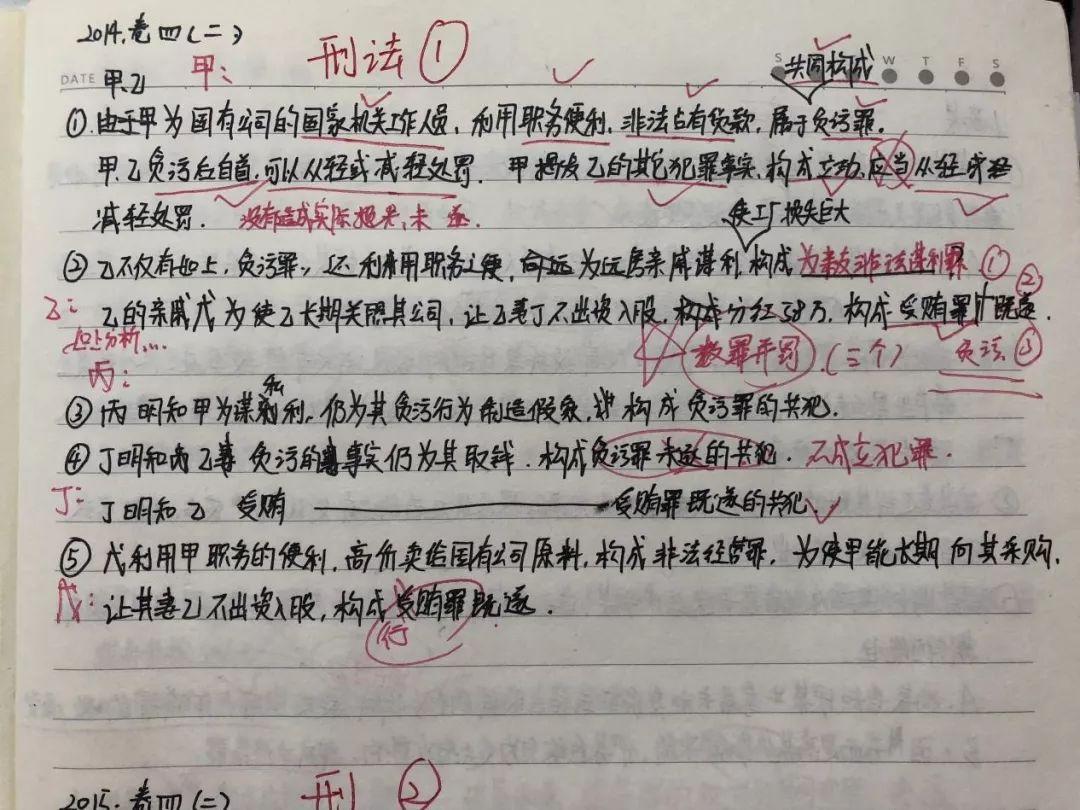 2014.卷四(二)
刑法①
甲:
甲.乙
DATE
S
W T F S
共同构成
①.由于甲为国有公司的国家机关工作人员,利用职务便利,非法占有货款,属于贪污罪.
甲.乙贪污后自首,可以从轻或减轻处罚.甲揭发乙的其它犯罪事实,构成立功,应当从轻或
减轻处罚.没有造成实际损失,未遂.
使工厂损失巨大
②乙不仅有如上,贪污罪,还利用职务之便,为远房亲戚谋利,构成为亲友非法谋利罪①
乙:
乙的亲戚戊为使乙长期关照其公司,让乙妻丁不出资入股,构成分红58万.构成受贿罪既遂.②
丙:
数罪并罚.(三个)
贪污③
③丙明知甲为谋私利,仍为其贪污行为制造假象,构成贪污罪的共犯.
④丁明知 乙 贪污的事实仍为其取钱.构成贪污罪未遂的共犯.不成立犯罪.
丁:
丁明知乙 受贿 受贿罪既遂的共犯.
⑤戊利用甲职务的便利,高价卖给国有公司原料,构成非法经营罪.为使甲能长期向其采购,
戊:
让其妻乙不出资入股,构成受贿罪既遂.
行
2015.卷四(二)
刑②